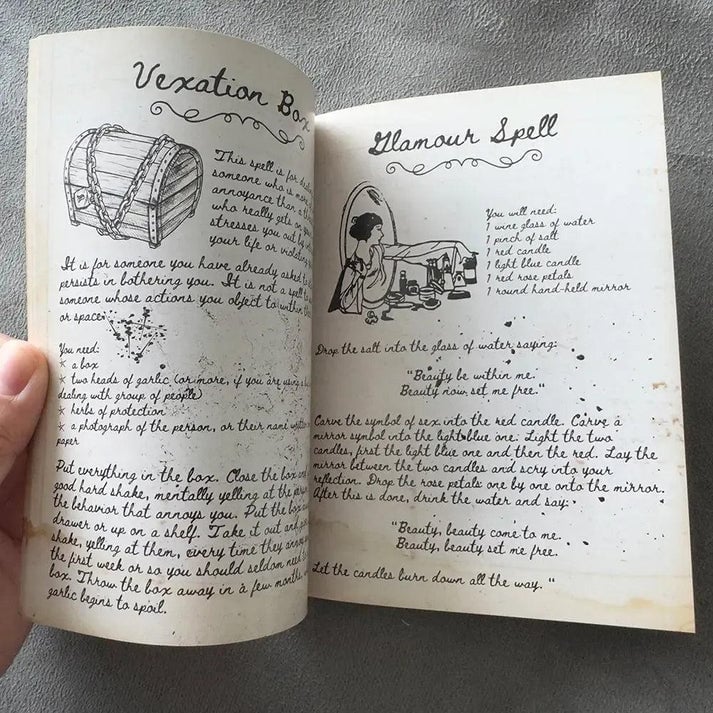 Vexation Box
This spell is for
someone who is more
annoyance than a
who really gets on
stresses you out by
your life or violating
It is for someone you have already asked to
persists in bothering you. It is not a spell to
someone whose actions you object to within
or space.
You need:
* a box
* two heads of garlic (or more, if you are using a
dealing with group of people)
* herbs of protection
* a photograph of the person, or their name written
paper
Put everything in the box. Close the box and
good hard shake, mentally yelling at the person
the behavior that annoys you. Put the box
drawer or up on a shelf. Take it out and
shake, yelling at them, every time they annoy
the first week or so you should seldom need to
box. Throw the box away in a few months,
garlic begins to spoil.
Glamour Spell
You will need:
1 wine glass of water
1 pinch of salt
1 red candle
1 light blue candle
1 red rose petals
1 round hand-held mirror
Drop the salt into the glass of water saying:
"Beauty be within me.
Beauty now set me free."
Carve the symbol of sex into the red candle. Carve a
mirror symbol into the light blue one. Light the two
candles, first the light blue one and then the red. Lay the
mirror between the two candles and scry into your
reflection. Drop the rose petals one by one onto the mirror.
After this is done, drink the water and say:
"Beauty, beauty come to me.
Beauty, beauty set me free.
Let the candles burn down all the way. "